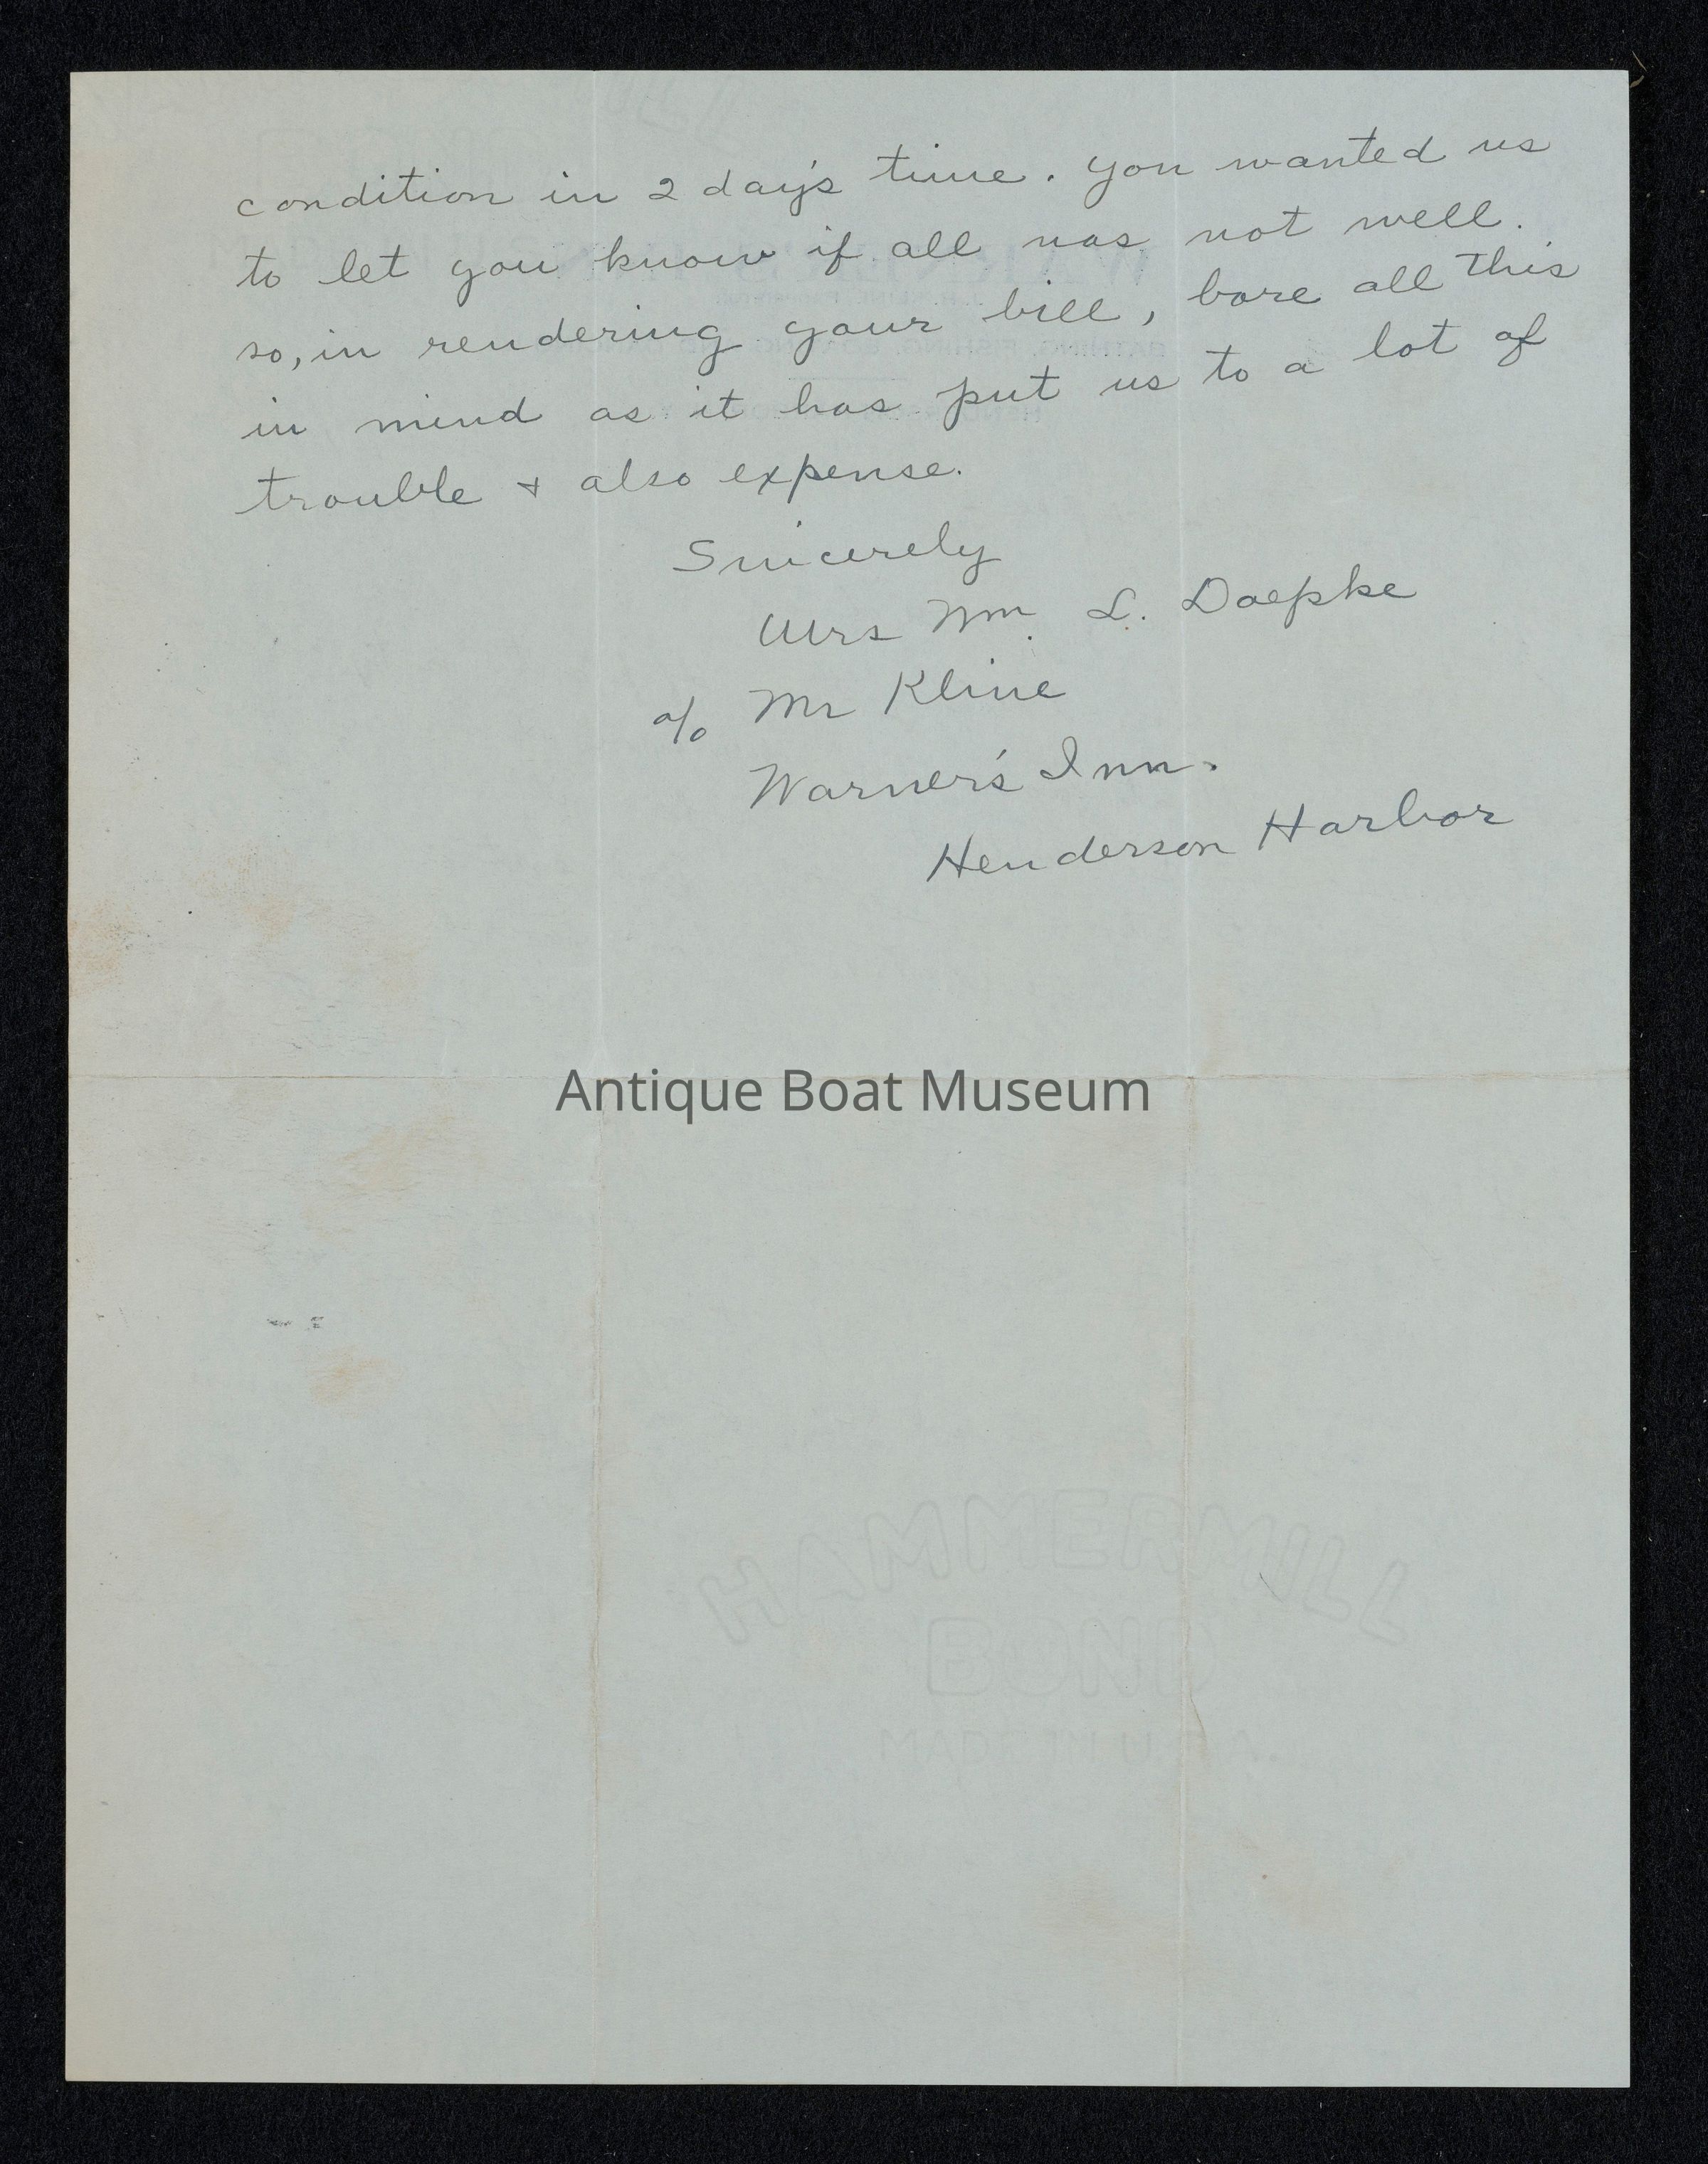 condition in 2 day's time. you wanted us
to let you know if all was not well.
so, in rendering your bill, bare all this
in mind as it has put us to a lot of
trouble + also expense.
Sincerely
Mrs Wm. L. Doepke
c/o Mr Kline
Warner's Inn.
Henderson Harbor
Antique Boat Museum
HAMMERMILL
BOND
MADE IN U.S.A.